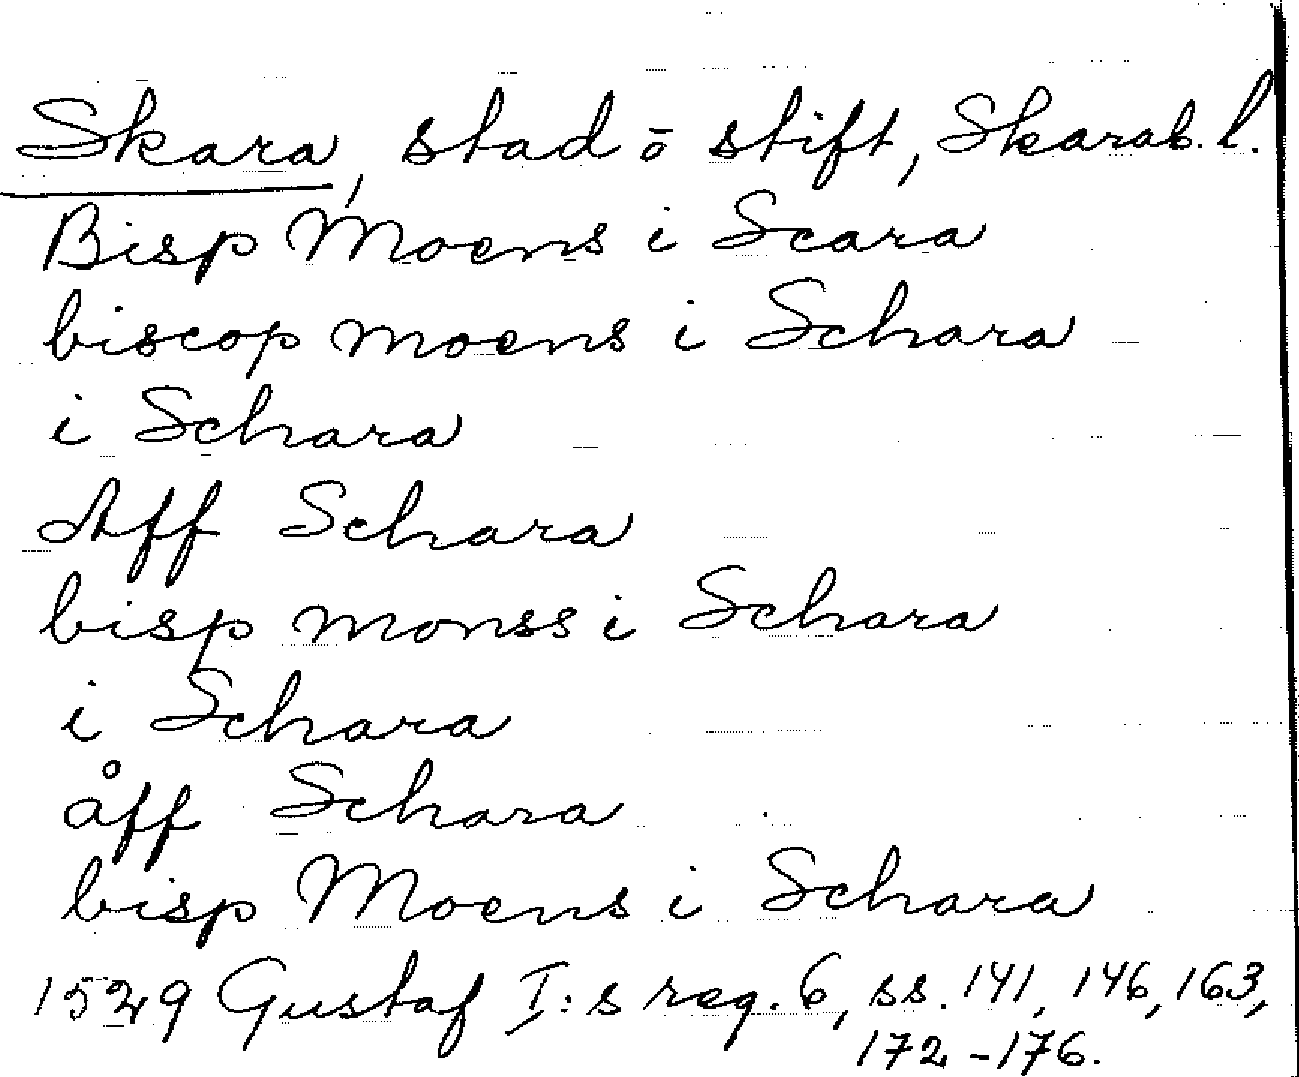 Skara, stad ō stift, Skarab. l.
Bisp Moens i Scara
biscop moens i Schara
i Schara
Aff Schara
bisp monss i Schara
i Schara
åff Schara
bisp Moens i Schara
1529 Gustaf I:s reg. 6, ss. 141, 146, 163,
172-176.